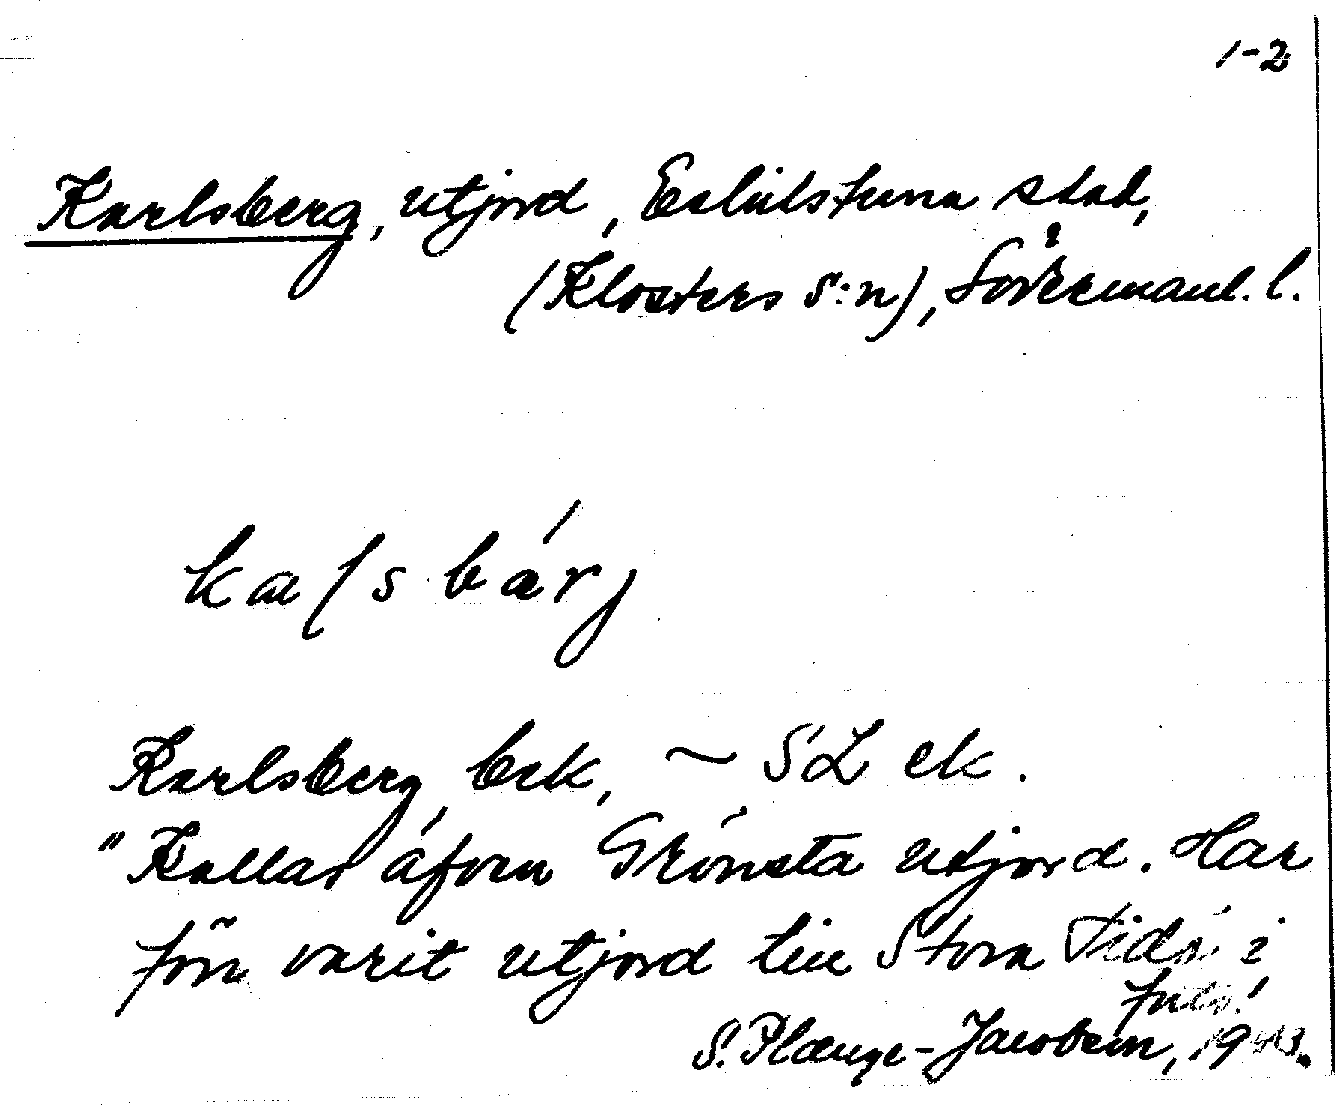 1-2
Karlsberg, utjord, Eskilstuna stad,
(Klosters s:n), Södermanl. l.
Karlsberg, bek, ~ SL ek.
"Kallas áforn Grönsta utjord. Har
förr varit utjord till Stora Sidö i
S. Plænge-Jacobson, 19